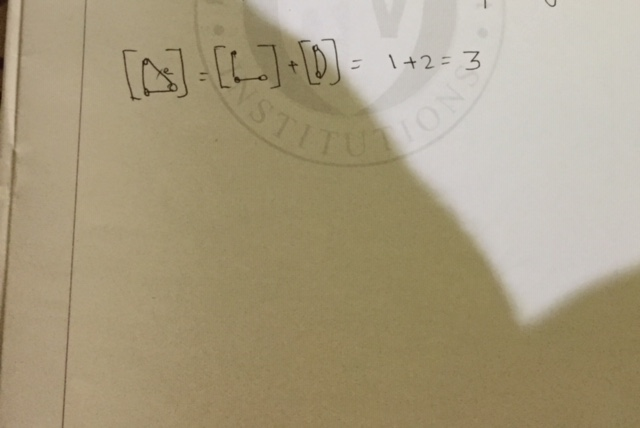 [ e ] = [ ] + [ ] = 1+2 = 3
INSTITUTIONS